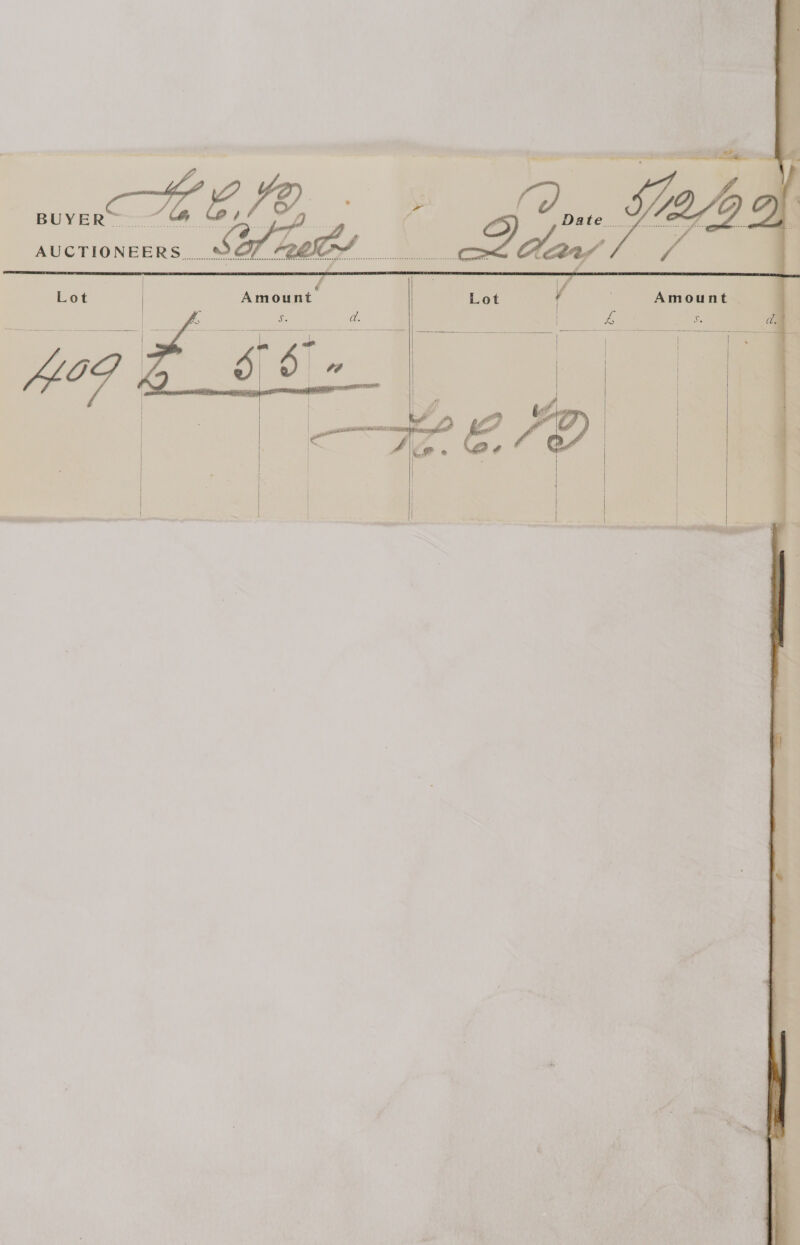 BUYER
AUCTIONEERS Sothebys 2 day Date 5/12/22
Lot Amount Lot Amount
£ s. d. £ s. d.
409 £ 5 5 "